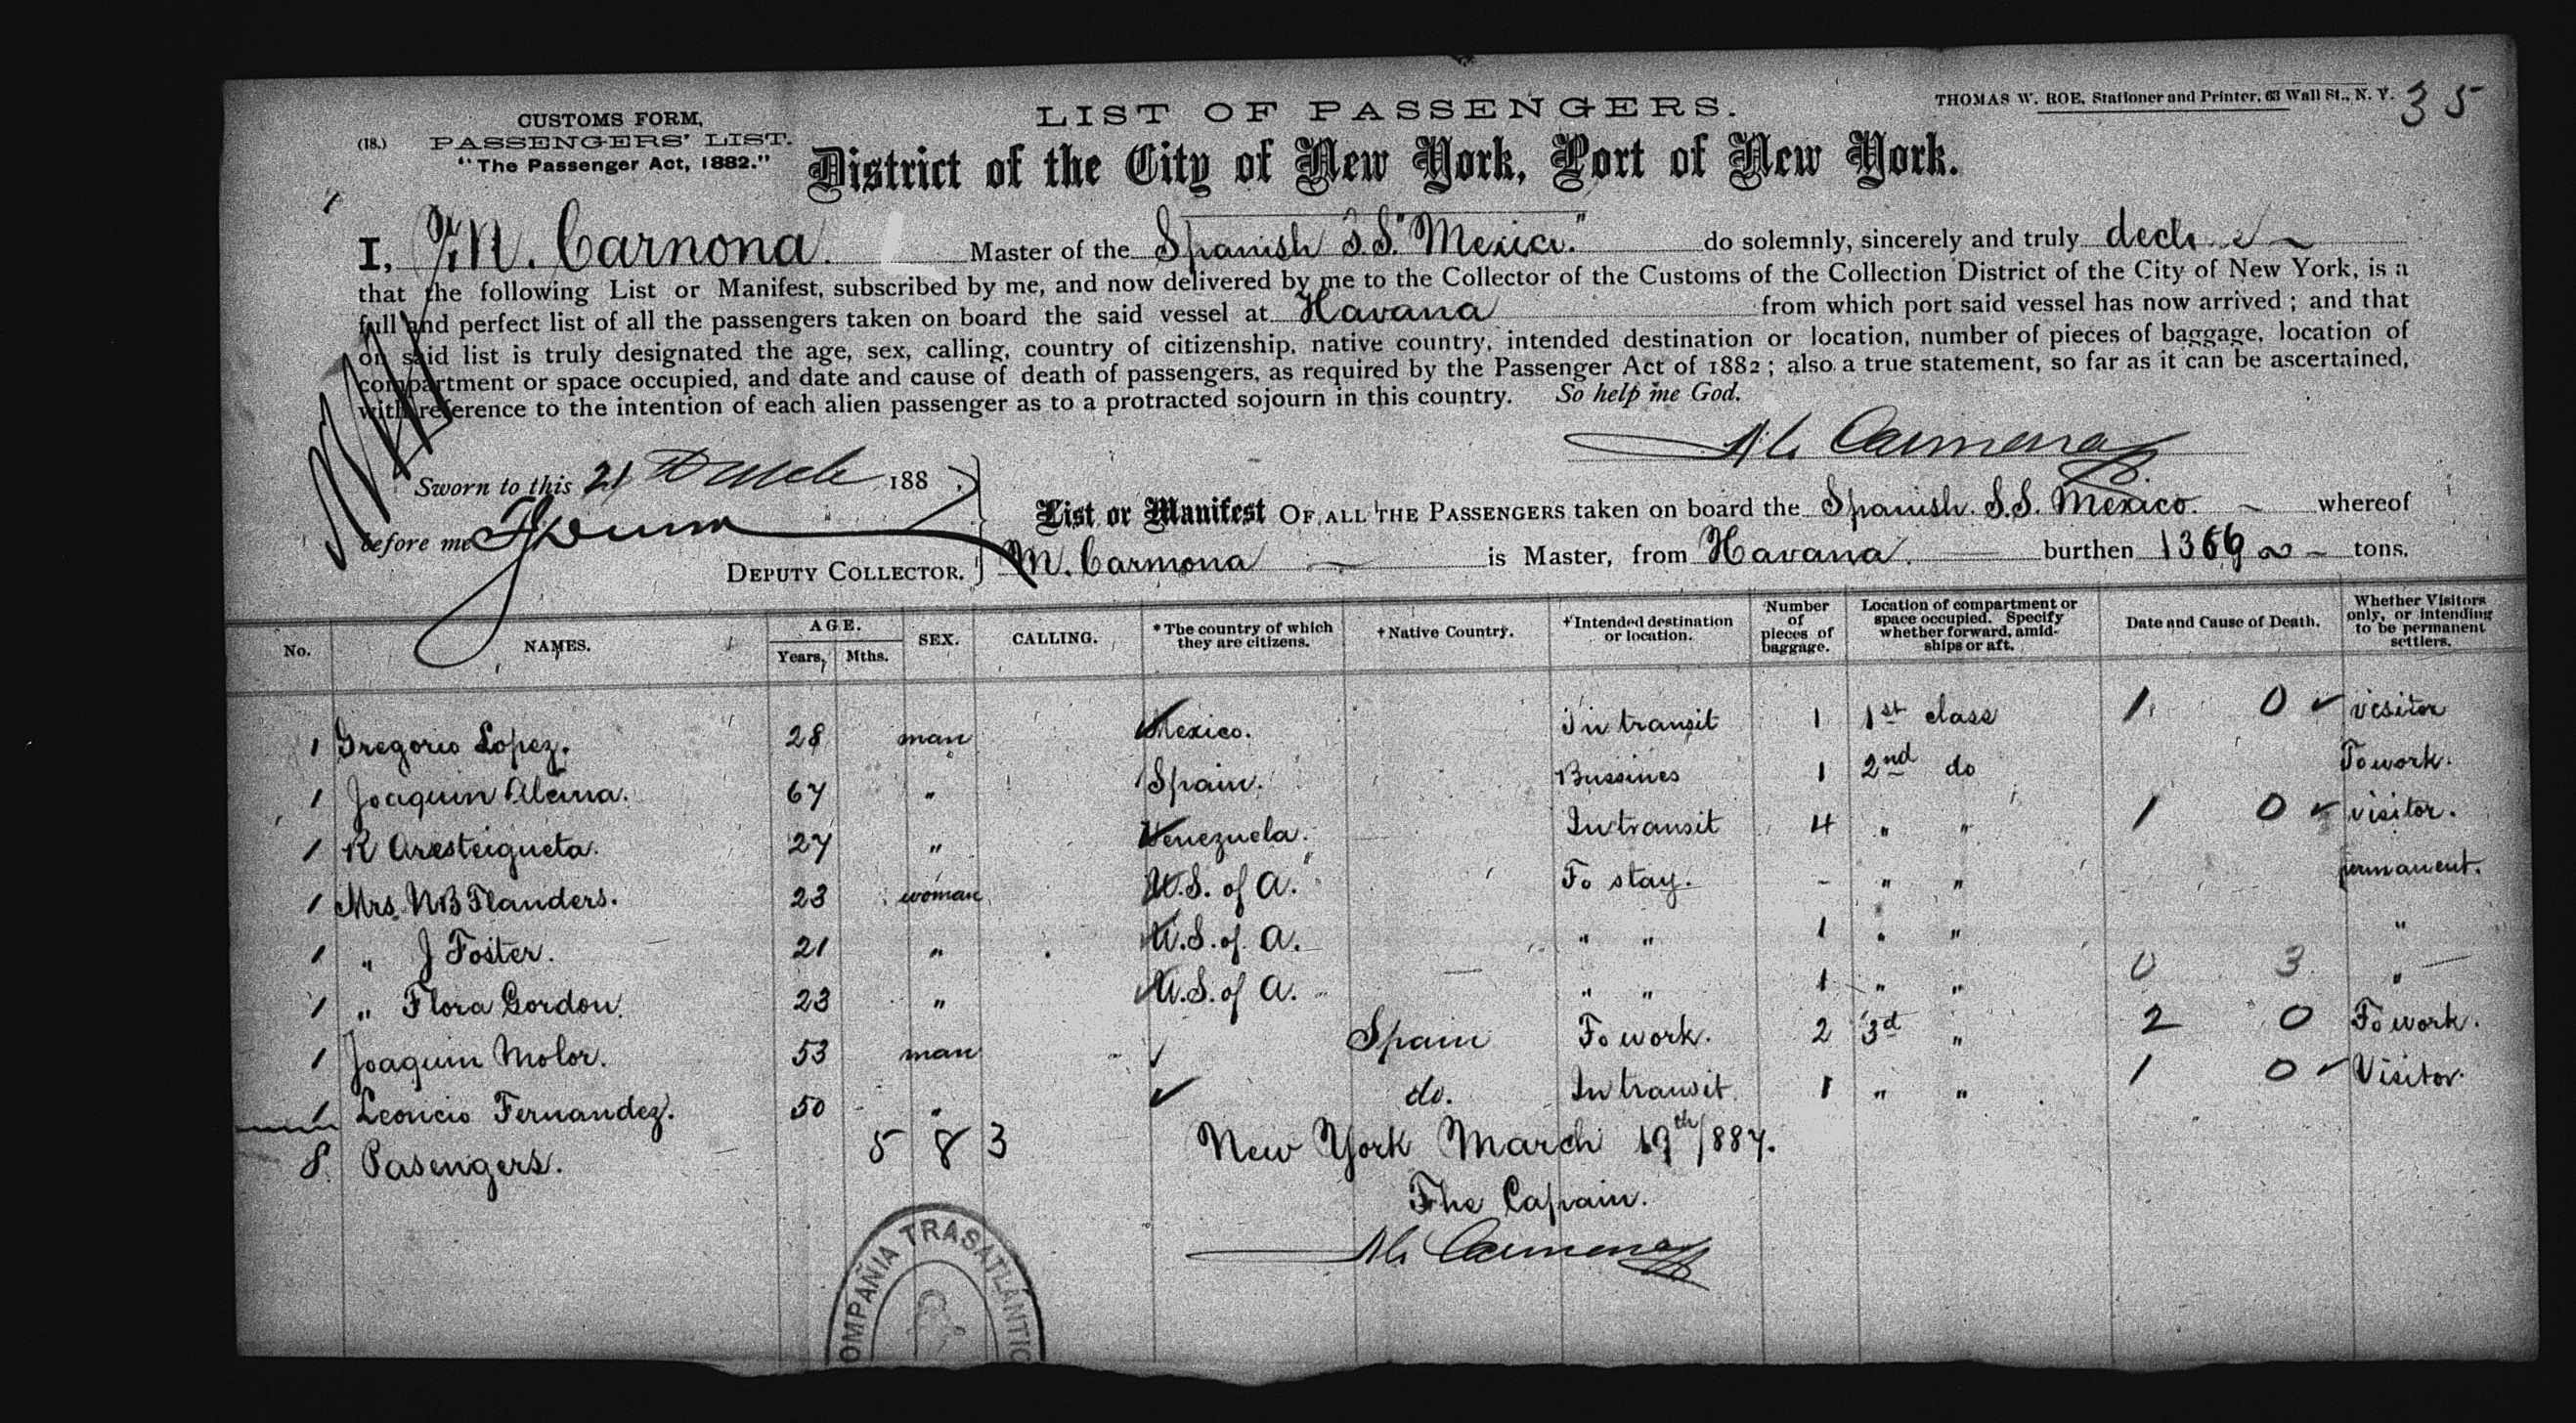 CUSTOMS FORM,
(18.) PASSENGERS' LIST.
"The Passenger Act, 1882."
LIST OF PASSENGERS.
THOMAS W. ROE, Stationer and Printer, 63 Wall St., N. Y.
35
District of the City of New York, Port of New York.
I, M. Carnona. Master of the Spanish S.S. "Mexico." do solemnly, sincerely and truly
that the following List or Manifest, subscribed by me, and now delivered by me to the Collector of the Customs of the Collection District of the City of New York, is a
full and perfect list of all the passengers taken on board the said vessel at Havana from which port said vessel has now arrived; and that
on said list is truly designated the age, sex, calling, country of citizenship, native country, intended destination or location, number of pieces of baggage, location of
compartment or space occupied, and date and cause of death of passengers, as required by the Passenger Act of 1882; also a true statement, so far as it can be ascertained,
with reference to the intention of each alien passenger as to a protracted sojourn in this country. So help me God.
M. Carmona
Sworn to this 21 March 188
before me
DEPUTY COLLECTOR.
List or Manifest OF ALL THE PASSENGERS taken on board the Spanish S.S. Mexico. whereof
M. Carmona is Master, from Havana. burthen 1366 tons.
No. NAMES. AGE. Years, Mths. SEX. CALLING. *The country of which they are citizens. †Native Country. †Intended destination or location. Number of pieces of baggage. Location of compartment or space occupied. Specify whether forward, amidships or aft. Date and Cause of Death. Whether Visitors only, or intending to be permanent settlers.
1 Gregorio Lopez. 28 man Mexico. In transit 1 1st class 1 0 ✓ visitor
1 Joaquin Alema. 67 " Spain. Bussines 1 2nd do To work.
1 R Aresteigueta. 27 " Venezuela. In transit 4 " " 1 0 ✓ visitor.
1 Mrs. N B Flanders. 23 woman U.S. of A. To stay. - " " permanent.
1 " J Foster. 21 " U.S. of A. " " 1 " " "
1 " Flora Gordon. 23 " U.S. of A. " " 1 " " 0 3 "
1 Joaquin Molor. 53 man ✓ Spain To work. 2 3d " 2 0 To work.
1 Leoncio Fernandez. 50 " ✓ do. In transit. 1 " " 1 0 ✓ Visitor.
8. Pasengers. 5 8 3 New York March 19th/887.
The Capain.
M. Carmona
COMPAÑIA TRASATLANTIC